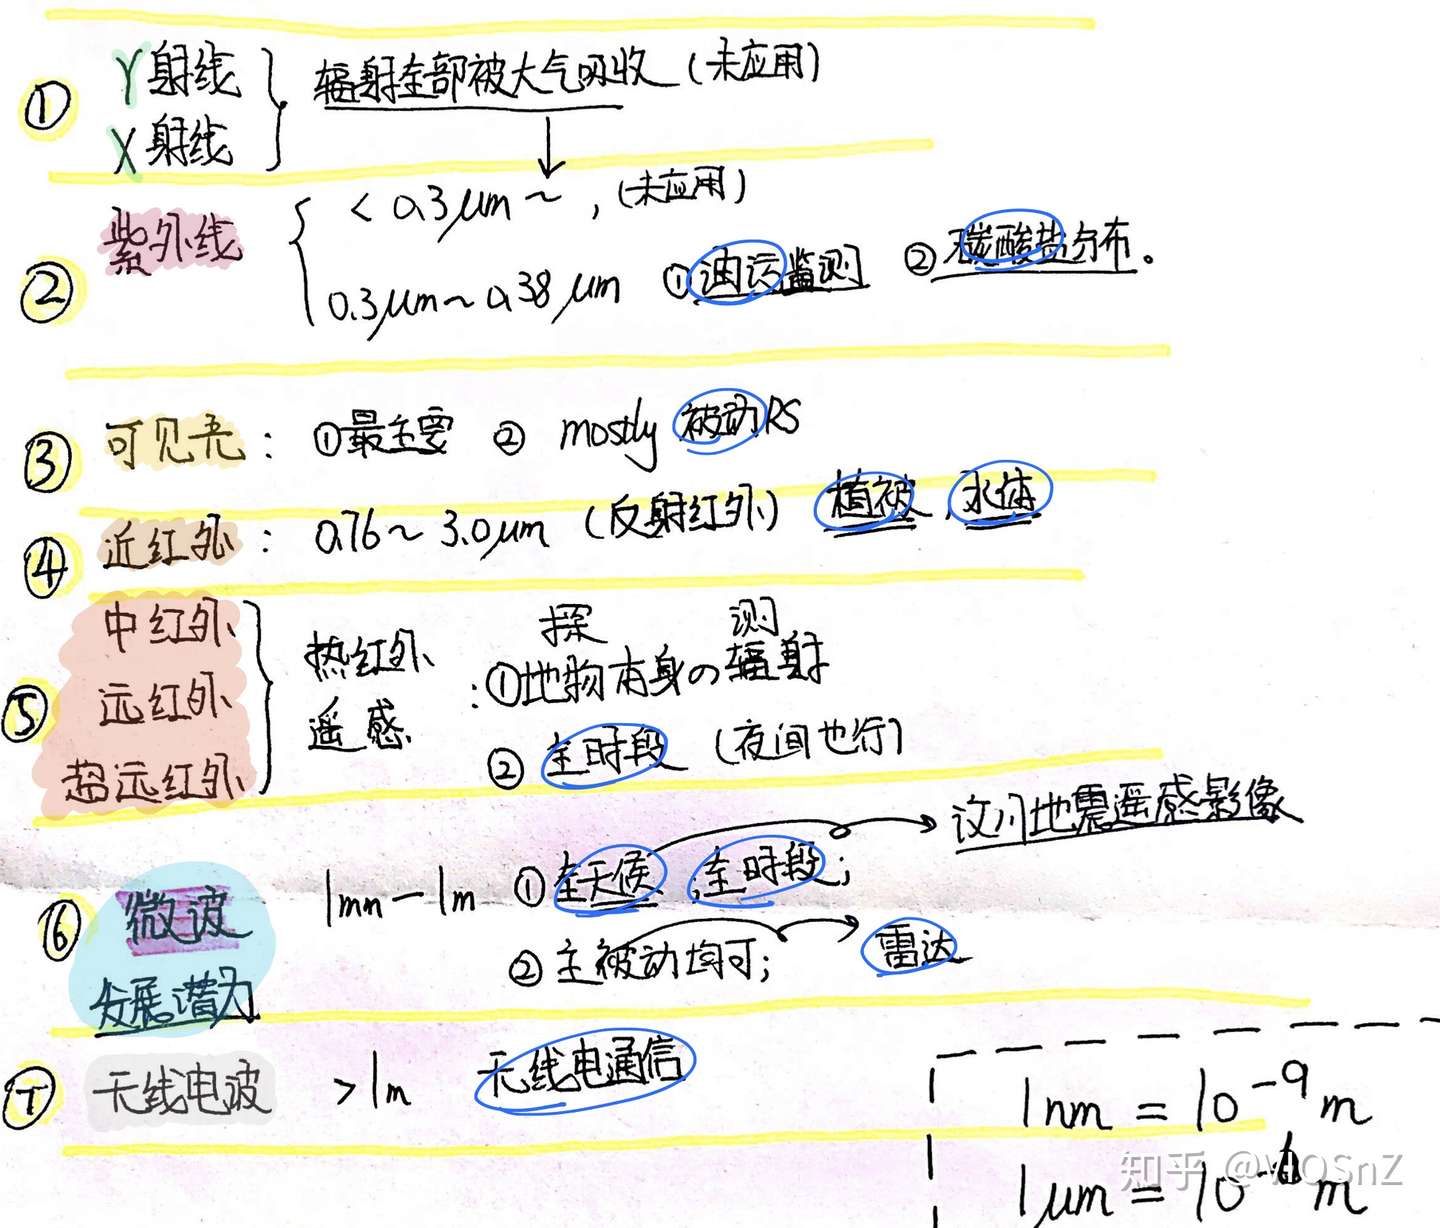 ① γ射线
X射线
辐射全部被大气吸收 (未应用)
② 紫外线
< 0.3μm ~ , (未应用)
0.3μm ~ 0.38μm ①油污监测 ②碳酸盐分布。
③ 可见光 : ①最主要 ② mostly 被动RS
④ 近红外 : 0.76 ~ 3.0μm (反射红外) 植被、水体
⑤ 中红外
远红外
超远红外
热红外
遥感
探 测
: ①地物本身の辐射
② 全时段 (夜间也行)
汶川地震遥感影像
⑥ 微波 1mm — 1m ①全天候 ; 全时段;
②主被动均可; 雷达
发展潜力
⑦ 无线电波 >1m 无线电通信
1nm = 10⁻⁹m
1μm = 10⁻⁶m
知乎